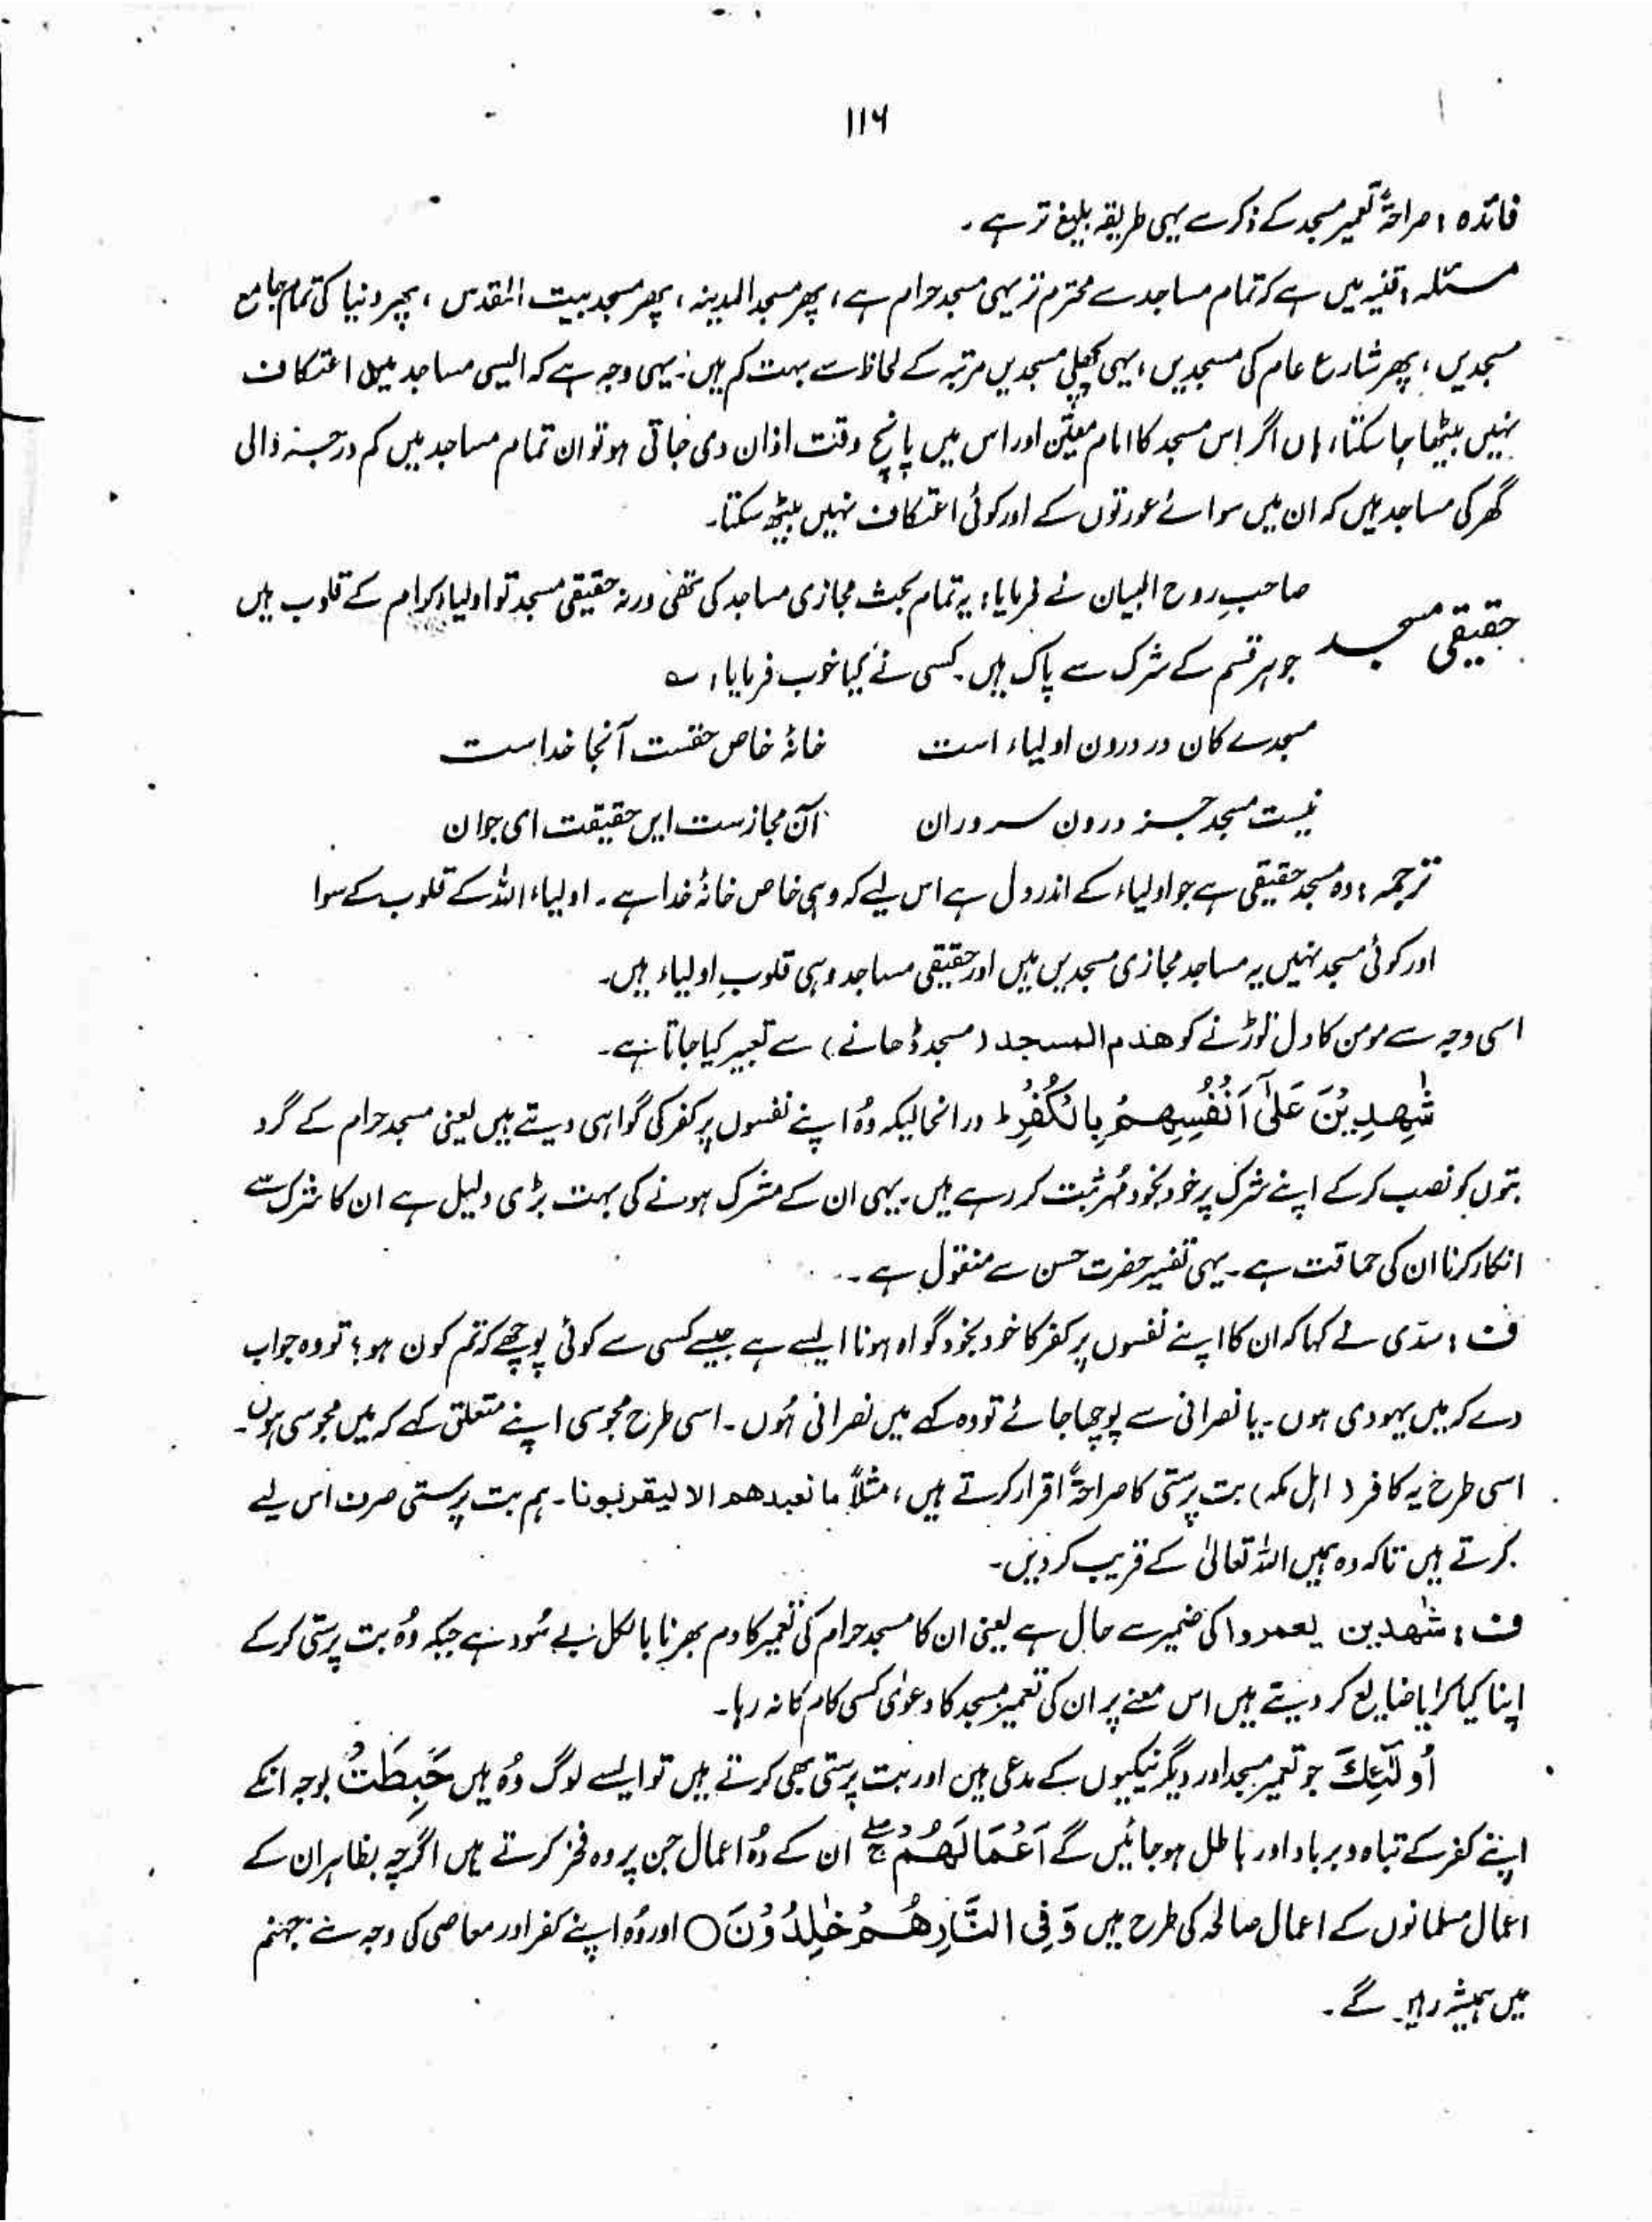 ۱۱۶
فائدہ : صراحۃً تعمیر مسجد کے ذکر سے یہی طریقہ بلیغ تر ہے ۔
مسئلہ : قنیہ میں ہے کہ تمام مساجد سے محترم تر یہی مسجد حرام ہے ، پھر مسجد المدینہ ، پھر مسجد بیت المقدس ، پھر دنیا کی تمام جامع
مسجدیں ، پھر شارع عام کی مسجدیں ، یہی پچھلی مسجدیں مرتبہ کے لحاظ سے بہت کم ہیں ۔ یہی وجہ ہے کہ ایسی مساجد میں اعتکاف
نہیں بیٹھا جا سکتا ، ہاں اگر اس مسجد کا امام معیّن اور اس میں پانچ وقت اذان دی جاتی ہو تو ان تمام مساجد میں کم درجہ والی
گھر کی مساجد ہیں کہ ان میں سوائے عورتوں کے اور کوئی اعتکاف نہیں بیٹھ سکتا ۔
حقیقی مسجد
صاحبِ روح البیان نے فرمایا : یہ تمام بحث مجازی مساجد کی تھی ورنہ حقیقی مسجد تو اولیاء کرام کے قلوب ہیں
جو ہر قسم کے شرک سے پاک ہیں ۔ کسی نے کیا خوب فرمایا : ؎
مسجدے کان در درون اولیاء است خانۂ خاص حقست آنجا خداست
نیست مسجد جز درون سروران آن مجازست ایں حقیقت ای جوان
ترجمہ : وہ مسجد حقیقی ہے جو اولیاء کے اندر دل ہے اس لیے کہ وہی خاص خانۂ خدا ہے ۔ اولیاء اللہ کے قلوب کے سوا
اور کوئی مسجد نہیں یہ مساجد مجازی مسجدیں ہیں اور حقیقی مساجد وہی قلوبِ اولیاء ہیں ۔
اسی وجہ سے مومن کا دل توڑنے کو ھدم المسجد (مسجد ڈھانے) سے تعبیر کیا جاتا ہے ۔
شٰهِدِیْنَ عَلٰۤی اَنْفُسِهِمْ بِالْكُفْرِ ؕ درانحالیکہ وُہ اپنے نفسوں پر کفر کی گواہی دیتے ہیں یعنی مسجد حرام کے گرد
بتوں کو نصب کر کے اپنے شرک پر خود بخود مُہر ثبت کر رہے ہیں ۔ یہی ان کے مشرک ہونے کی بہت بڑی دلیل ہے ان کا شرک سے
انکار کرنا ان کی حماقت ہے ۔ یہی تفسیر حضرت حسن سے منقول ہے ۔
ف : سدّی نے کہا کہ ان کا اپنے نفسوں پر کفر کا خود بخود گواہ ہونا ایسے ہے جیسے کسی سے کوئی پوچھے کہ تم کون ہو ؟ تو وہ جواب
دے کہ میں یہودی ہوں ۔ یا نصرانی سے پوچھا جائے تو وہ کہے میں نصرانی ہُوں ۔ اسی طرح مجوسی اپنے متعلق کہے کہ میں مجوسی ہوں ۔
اسی طرح یہ کافر (اہل مکہ) بت پرستی کا صراحۃً اقرار کرتے ہیں ، مثلاً ما نعبدھم الا لیقربونا ۔ ہم بت پرستی صرف اس لیے
کرتے ہیں تاکہ وہ ہمیں اللہ تعالیٰ کے قریب کر دیں ۔
ف : شٰھدین یعمروا کی ضمیر سے حال ہے یعنی ان کا مسجد حرام کی تعمیر کا دم بھرنا بالکل بے سُود ہے جبکہ وُہ بت پرستی کر کے
اپنا کیا کرایا ضایع کر دیتے ہیں اس معنے پر ان کی تعمیر مسجد کا دعوٰی کسی کام کا نہ رہا ۔
اُولٰٓئِكَ جو تعمیر مسجد اور دیگر نیکیوں کے مدعی ہیں اور بت پرستی بھی کرتے ہیں تو ایسے لوگ وُہ ہیں حَبِطَتْ بوجہ انکے
اپنے کفر کے تباہ و برباد اور باطل ہو جائیں گے اَعْمَالُهُمْ ۚۖ ان کے وُہ اعمال جن پر وہ فخر کرتے ہیں اگرچہ بظاہر ان کے
اعمال مسلمانوں کے اعمال صالحہ کی طرح ہیں وَ فِی النَّارِ هُمْ خٰلِدُوْنَ ○ اور وُہ اپنے کفر اور معاصی کی وجہ سے جہنم
میں ہمیشہ رہیں گے ۔